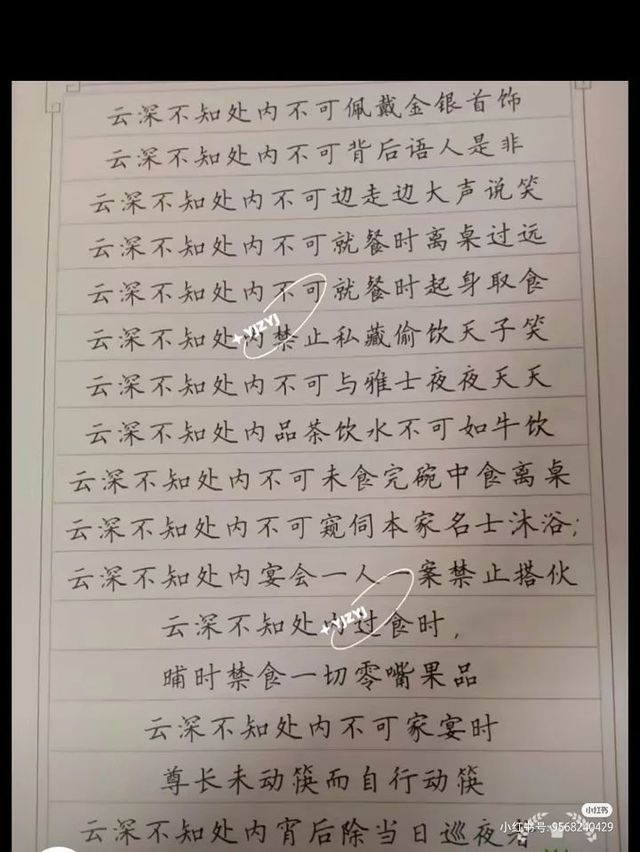 云深不知处内不可佩戴金银首饰
云深不知处内不可背后语人是非
云深不知处内不可边走边大声说笑
云深不知处内不可就餐时离桌过远
云深不知处内不可就餐时起身取食
云深不知处内禁止私藏偷饮天子笑
云深不知处内不可与雅士夜夜天天
云深不知处内品茶饮水不可如牛饮
云深不知处内不可未食完碗中食离桌
云深不知处内不可窥伺本家名士沐浴;
云深不知处内宴会一人一案禁止搭伙
云深不知处内过食时,
晡时禁食一切零嘴果品
云深不知处内不可家宴时
尊长未动筷而自行动筷
云深不知处内宵后除当日巡夜者
YJZYJ
YJZYJ
小红书
小红书号:9568240429